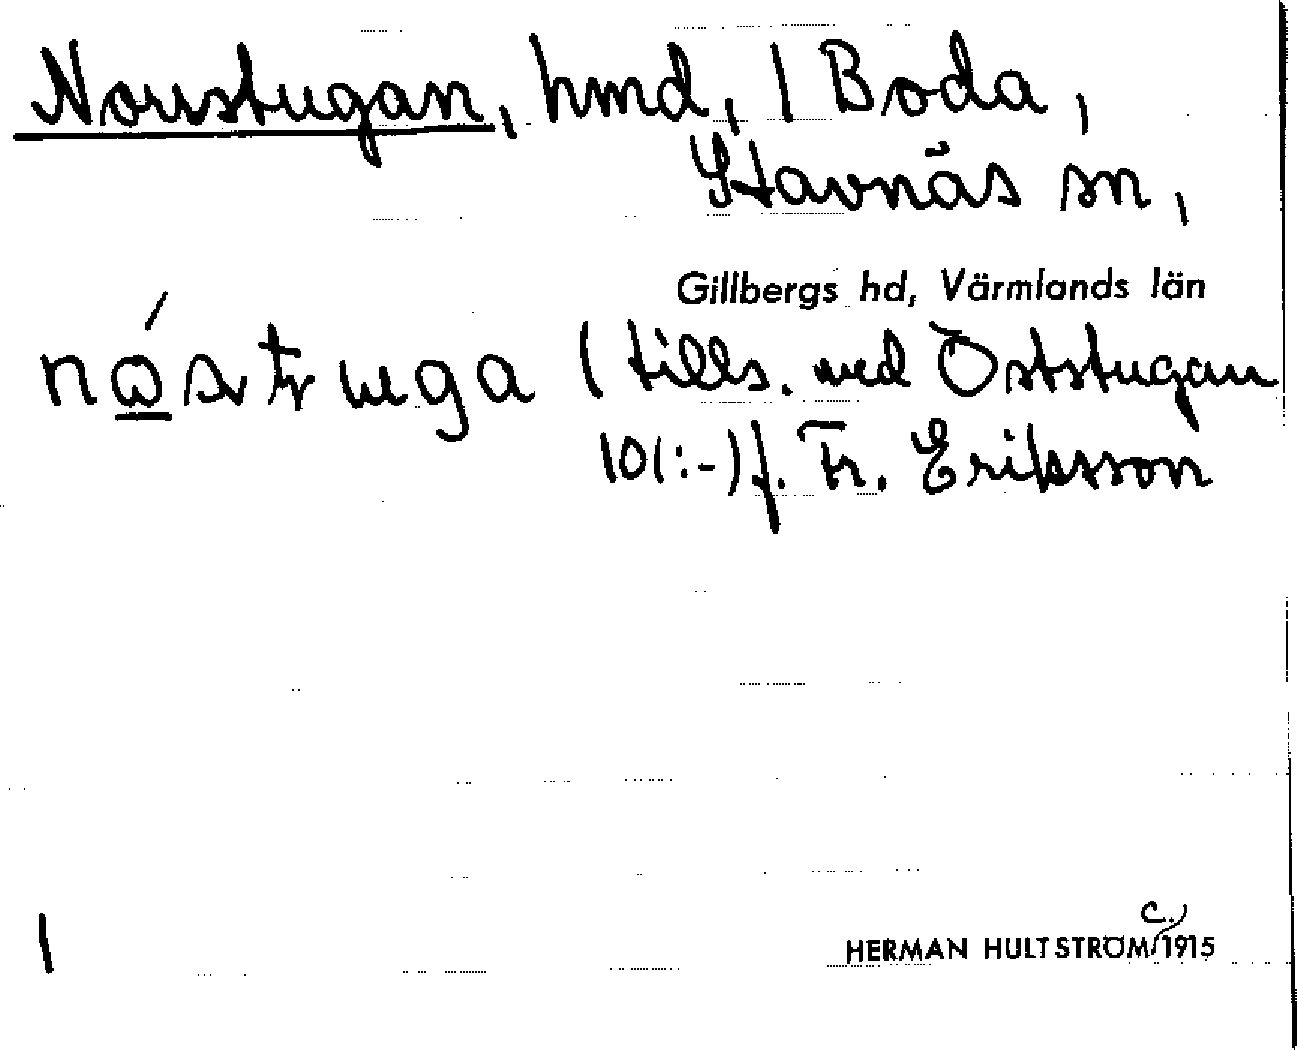 Norrstugan, hmd, 1 Boda,
Stavnäs sn,
Gillbergs hd, Värmlands län
nástuga (tills. med Öststugan
10(:-) f. Fr. Eriksson
1
HERMAN HULTSTRÖM c. 1915